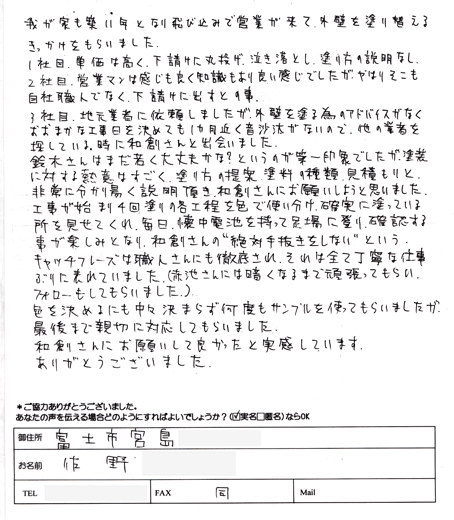 我が家も築11年となり飛び込みで営業が来て、外壁を塗り替える
きっかけをもらいました。
1社目、単価は高く、下請けに丸投げ、泣き落とし、塗り方の説明なし。
2社目、営業マンは感じも良く知識もあり良い感じでしたが、やはりそこも
自社職人でなく、下請けに出すとの事。
3社目、地元業者に依頼しましたが、外壁を塗る為のアドバイスがなく
おおまかな工事日を決めても1カ月近く音沙汰がないので、他の業者を
探している時に和創さんと出会いました。
鈴木さんはまだ若く大丈夫かな?というのが第一印象でしたが、塗装
に対する熱意はすごく、塗り方の提案、塗料の種類、見積もりと、
非常に分かり易く説明頂き、和創さんにお願いしようと思いました。
工事が始まり4回塗りの各工程を色で使い分け、確実に塗っている
所を見せてくれ、毎日、懐中電池を持って足場に登り、確認する
事が楽しみとなり、和創さんの"絶対手抜きをしない"という
キャッチフレーズは職人さんにも徹底され、それは全て丁寧な仕事
ぶりに表れていました。(赤池さんには暗くなるまで頑張ってもらい、
フォローもしてもらいました。)
色を決めるにも中々決まらず何度もサンプルを使ってもらいましたが、
最後まで親切に対応してもらいました。
和創さんにお願いして良かったと実感しています。
ありがとうございました。
*ご協力ありがとうございました。
あなたの声を伝える場合どのようにすればよいでしょうか?(☑実名□匿名)ならOK
御住所 富士市宮島
お名前 佐野
TEL FAX 同 Mail